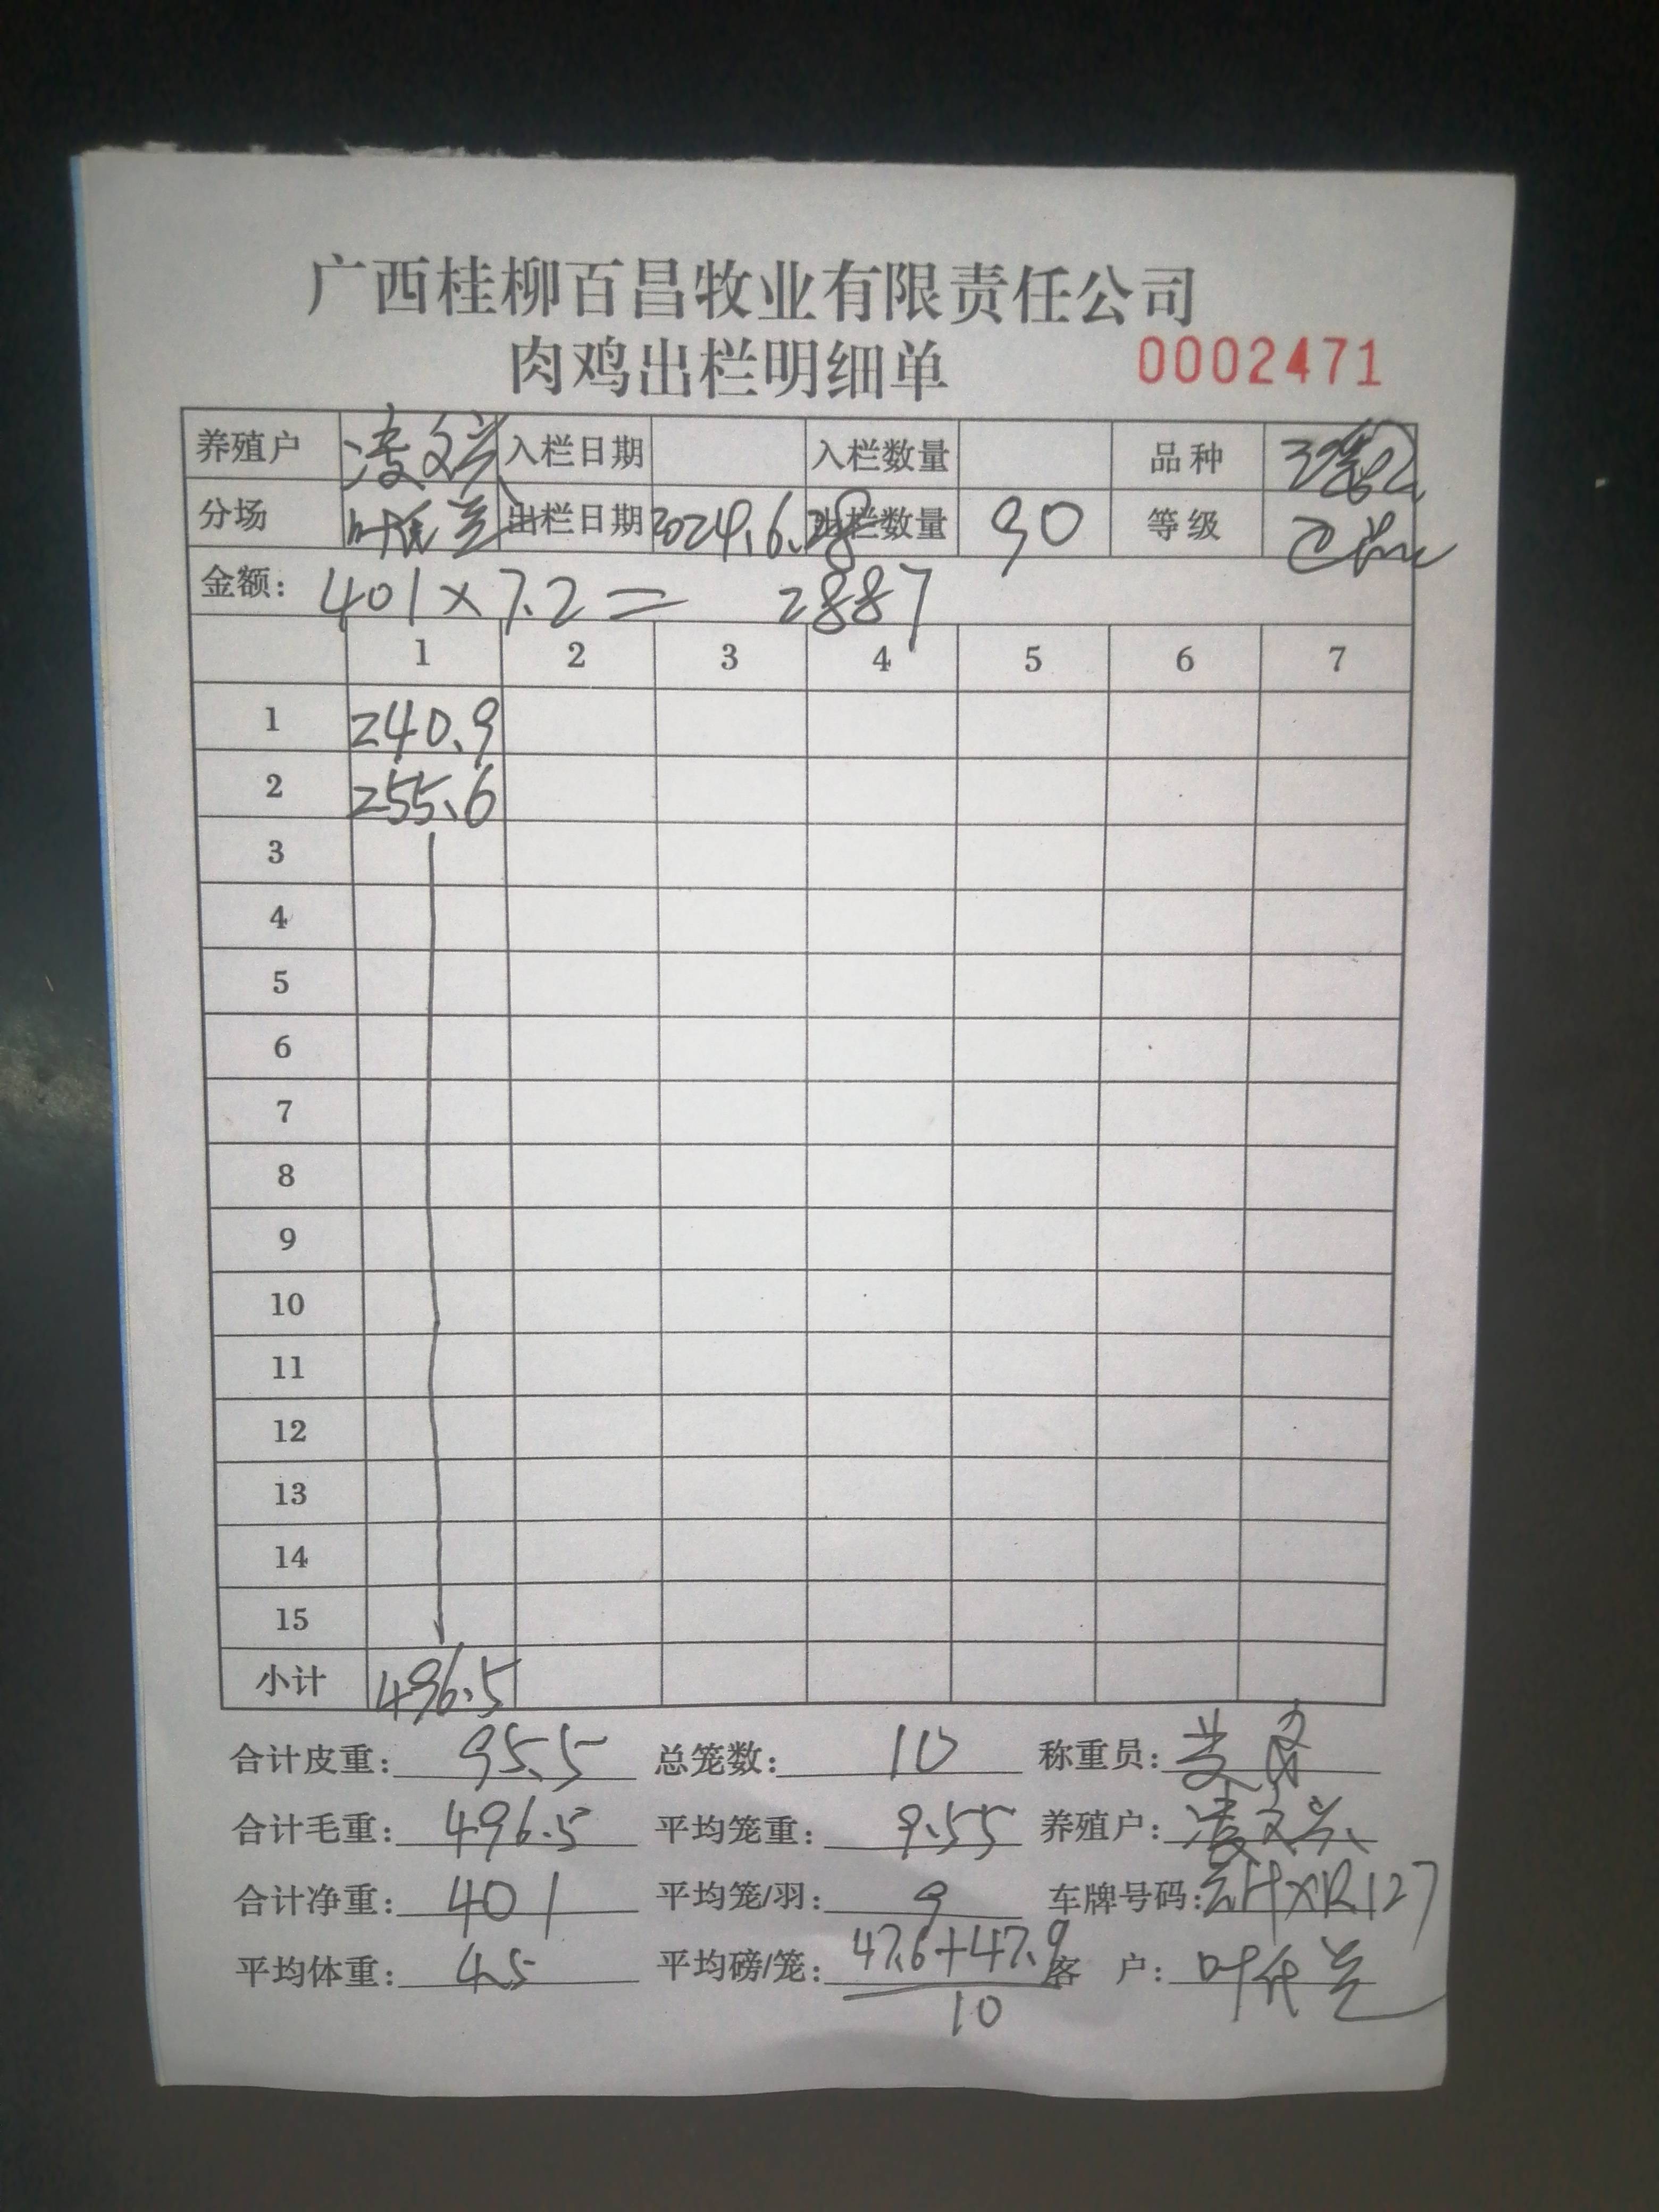 广西桂柳百昌牧业有限责任公司
肉鸡出栏明细单 0002471
养殖户 凌文兴 入栏日期 入栏数量 品种
分场 出栏日期 2024.6.28 出栏数量 90 等级
金额: 401×7.2= 2887
1 2 3 4 5 6 7
1 240.9
2 255.6
3
4
5
6
7
8
9
10
11
12
13
14
15
小计 496.5
合计皮重: 95.5 总笼数: 10 称重员:
合计毛重: 496.5 平均笼重: 9.55 养殖户: 凌文兴
合计净重: 401 平均笼/羽: 9 车牌号码: 云HXR127
平均体重: 4.5 平均磅/笼: 47.6+47.9 客 户:
10